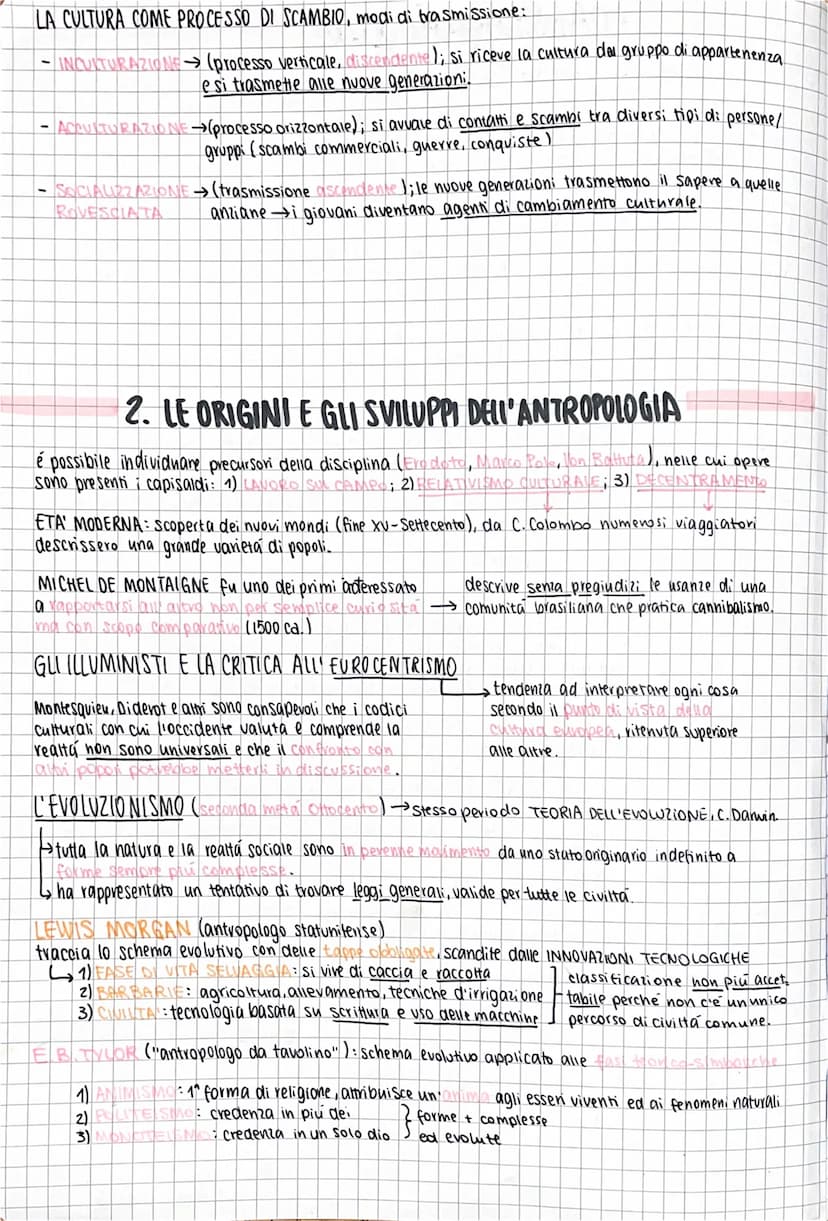 LA CULTURA COME PROCESSO DI SCAMBIO, modi di trasmissione:
- INCULTURAZIONE → (processo verticale, discendente); si riceve la cultura dal gruppo di appartenenza
e si trasmette alle nuove generazioni.
- ACCULTURAZIONE → (processo orizzontale); si avvale di contatti e scambi tra diversi tipi di persone/
gruppi (scambi commerciali, guerre, conquiste)
- SOCIALIZZAZIONE → (trasmissione ascendente); le nuove generazioni trasmettono il sapere a quelle
ROVESCIATA anziane → i giovani diventano agenti di cambiamento culturale.
2. LE ORIGINI E GLI SVILUPPI DELL'ANTROPOLOGIA
é possibile individuare precursori della disciplina (Erodoto, Marco Polo, Ibn Battuta), nelle cui opere
sono presenti i capisaldi: 1) LAVORO SUL CAMPO; 2) RELATIVISMO CULTURALE; 3) DECENTRAMENTO
ETA' MODERNA: scoperta dei nuovi mondi (fine XV-Settecento), da C. Colombo numerosi viaggiatori
descrissero una grande varietá di popoli.
MICHEL DE MONTAIGNE fu uno dei primi interessato
a rapportarsi all'altro non per semplice curiositá →
ma con scopo comparativo (1500 ca.)
descrive senza pregiudizi le usanze di una
comunitá brasiliana che pratica cannibalismo.
GLI ILLUMINISTI E LA CRITICA ALL'EUROCENTRISMO
→ tendenza ad interpretare ogni cosa
secondo il punto di vista della
cultura europea, ritenuta superiore
alle altre.
Montesquieu, Diderot e altri sono consapevoli che i codici
culturali con cui l'occidente valuta e comprende la
realtá non sono universali e che il confronto con
altri popoli potrebbe metterli in discussione.
L'EVOLUZIONISMO (seconda metá Ottocento) → stesso periodo TEORIA DELL'EVOLUZIONE, C. Darwin.
→ tutta la natura e la realtá sociale sono in perenne movimento da uno stato originario indefinito a
forme sempre piú complesse.
→ ha rappresentato un tentativo di trovare leggi generali, valide per tutte le civiltá.
LEWIS MORGAN (antropologo statunitense)
traccia lo schema evolutivo con delle tappe obbligate, scandite dalle INNOVAZIONI TECNOLOGICHE
→ 1) FASE DI VITA SELVAGGIA: si vive di caccia e raccolta
2) BARBARIE: agricoltura, allevamento, tecniche d'irrigazione
3) CIVILTA': tecnologia basata su scrittura e uso delle macchine
classificazione non piú accet-
tabile perché non c'é un unico
percorso di civiltá comune.
E.B. TYLOR ("antropologo da tavolino"): schema evolutivo applicato alle fasi teorico-simboliche
1) ANIMISMO: 1ª forma di religione, attribuisce un'anima agli esseri viventi ed ai fenomeni naturali
2) POLITEISMO: credenza in piú dei
3) MONOTEISMO: credenza in un solo dio
} forme + complesse
ed evolute